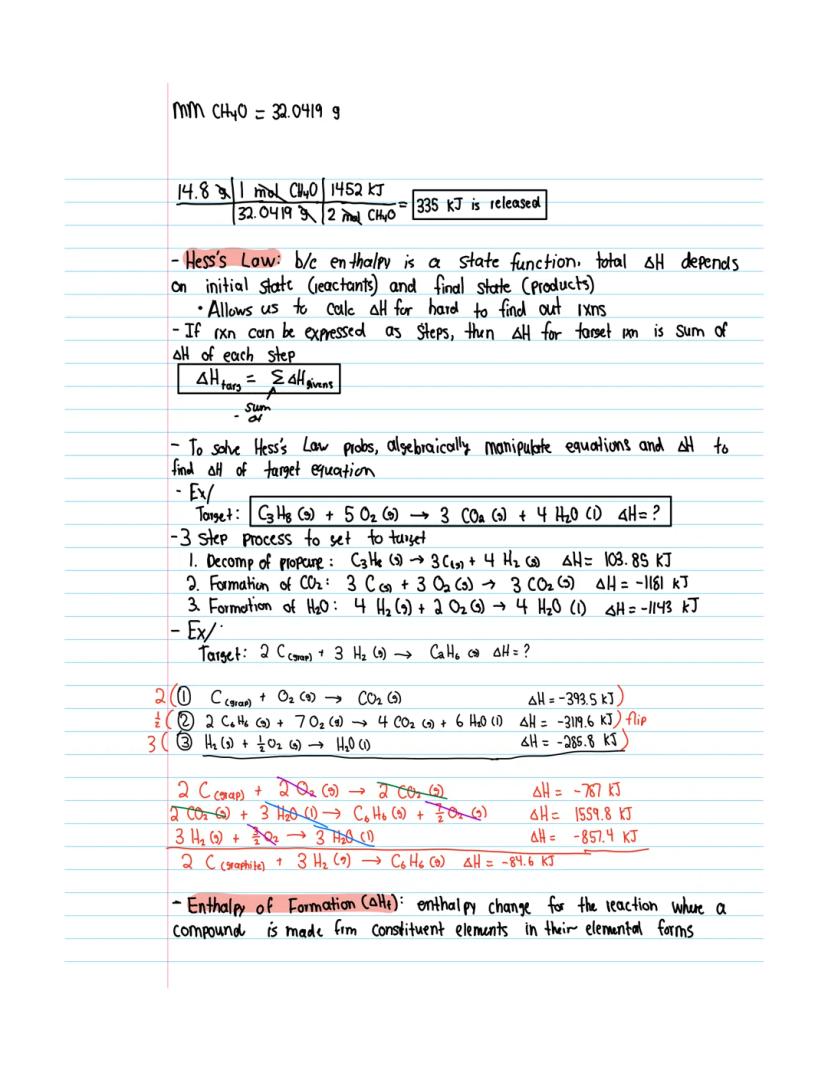 MM CH₄O = 32.0419 g
14.8 g | 1 mol CH₄O | 1452 KJ
32.0419 g | 2 mol CH₄O = 335 KJ is released
- Hess's Law: b/c enthalpy is a state function, total ΔH depends
on initial state (reactants) and final state (products)
• Allows us to calc ΔH for hard to find out rxns
- If rxn can be expressed as steps, then ΔH for target rxn is sum of
ΔH of each step
ΔH targ = Σ ΔH givens
sum
- of
- To solve Hess's Law probs, algebraically manipulate equations and ΔH to
find ΔH of target equation
- Ex/
Target: C₃H₈ (g) + 5 O₂ (g) → 3 CO₂ (g) + 4 H₂O (l) ΔH = ?
- 3 step process to get to target
1. Decomp of propane: C₃H₈ (g) → 3 C(s) + 4 H₂ (g) ΔH = 103.85 KJ
2. Formation of CO₂: 3 C(s) + 3 O₂ (g) → 3 CO₂ (g) ΔH = -1181 KJ
3. Formation of H₂O: 4 H₂ (g) + 2 O₂ (g) → 4 H₂O (l) ΔH = -1143 KJ
- Ex/
Target: 2 C (grap) + 3 H₂ (g) → C₂H₆ (g) ΔH = ?
2 ( ① C (grap) + O₂ (g) → CO₂ (g) ΔH = -393.5 KJ )
½ ( ② 2 C₆H₆ (g) + 7 O₂ (g) → 4 CO₂ (g) + 6 H₂O (l) ΔH = -3119.6 KJ ) flip
3 ( ③ H₂ (g) + ½ O₂ (g) → H₂O (l) ΔH = -285.8 KJ )
2 C (grap) + 2 O₂ (g) → 2 CO₂ (g) ΔH = -787 KJ
2 CO₂ (g) + 3 H₂O (l) → C₆H₆ (g) + 7/2 O₂ (g) ΔH = 1559.8 KJ
3 H₂ (g) + 3/2 O₂ → 3 H₂O (l) ΔH = -857.4 KJ
2 C (graphite) + 3 H₂ (g) → C₆H₆ (g) ΔH = -84.6 KJ
- Enthalpy of Formation (ΔHf): enthalpy change for the reaction where a
compound is made frm constituent elements in their elemental forms